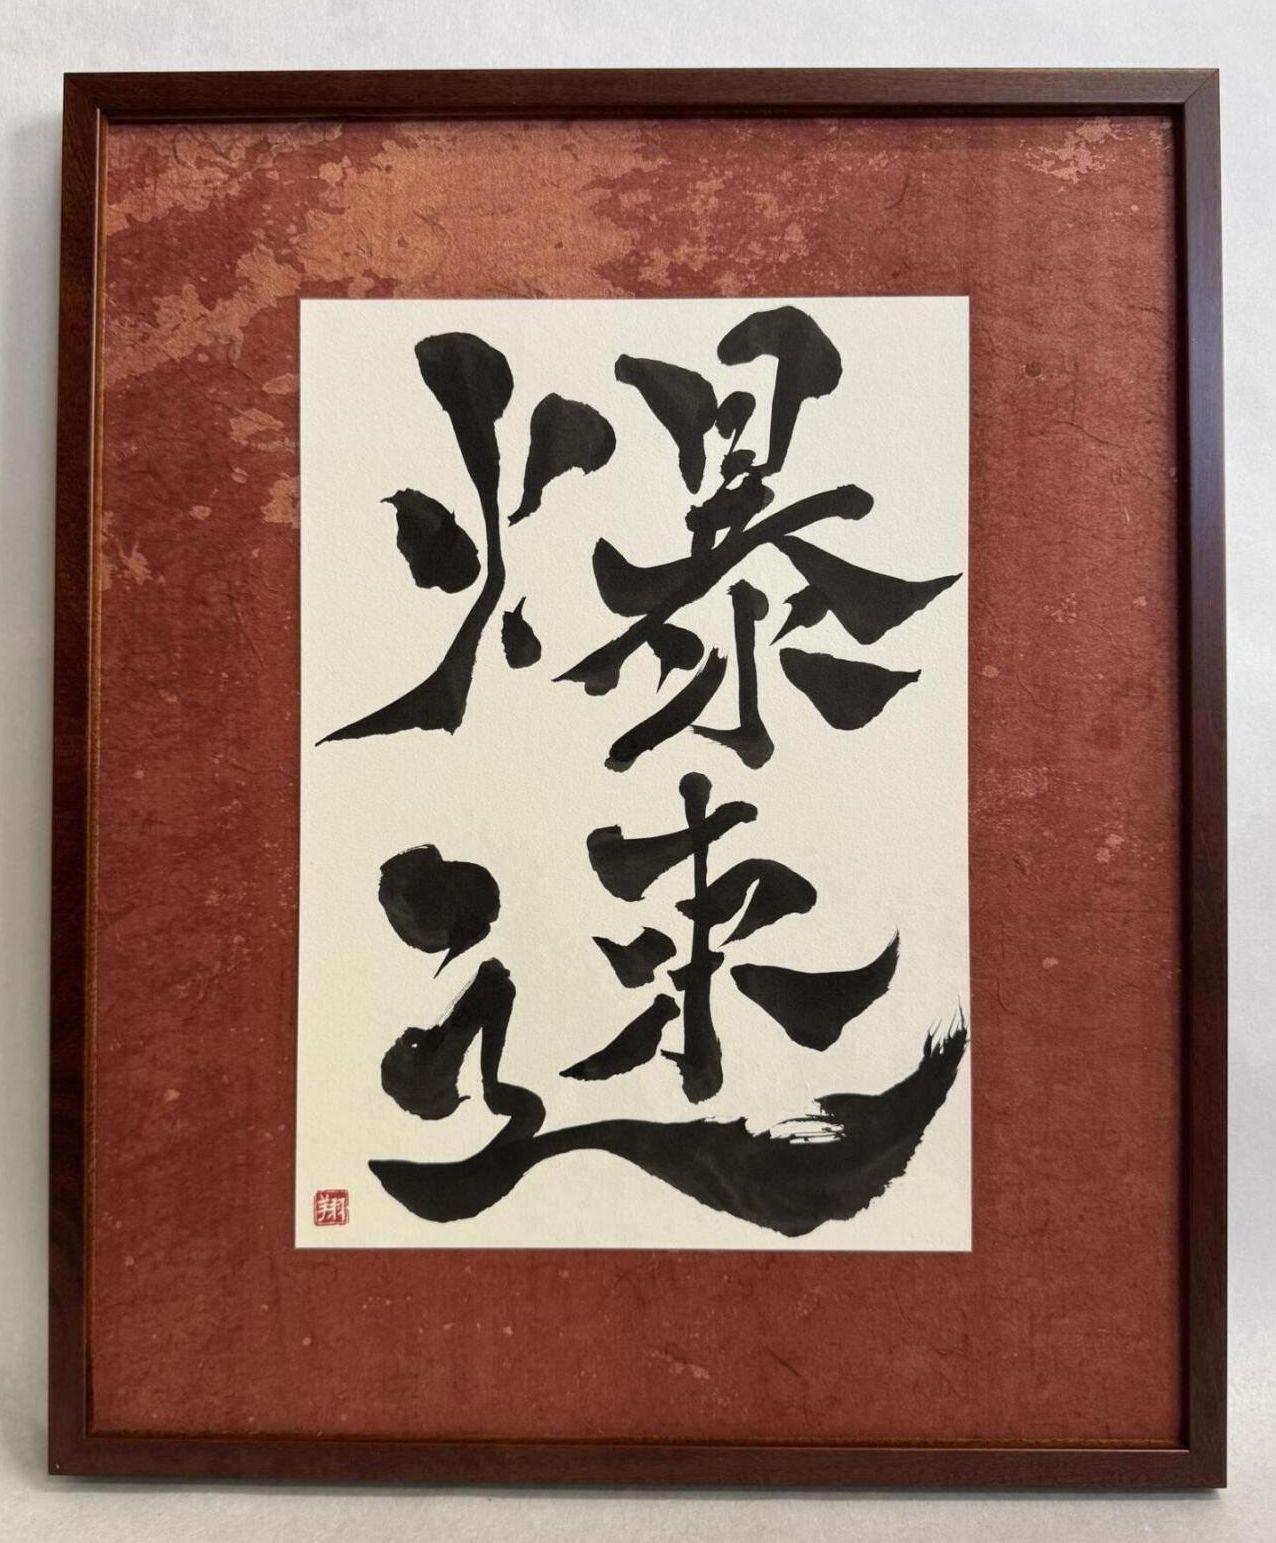 爆速
翔